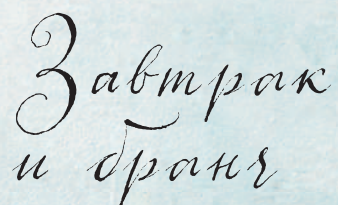 Завтрак
и бранч